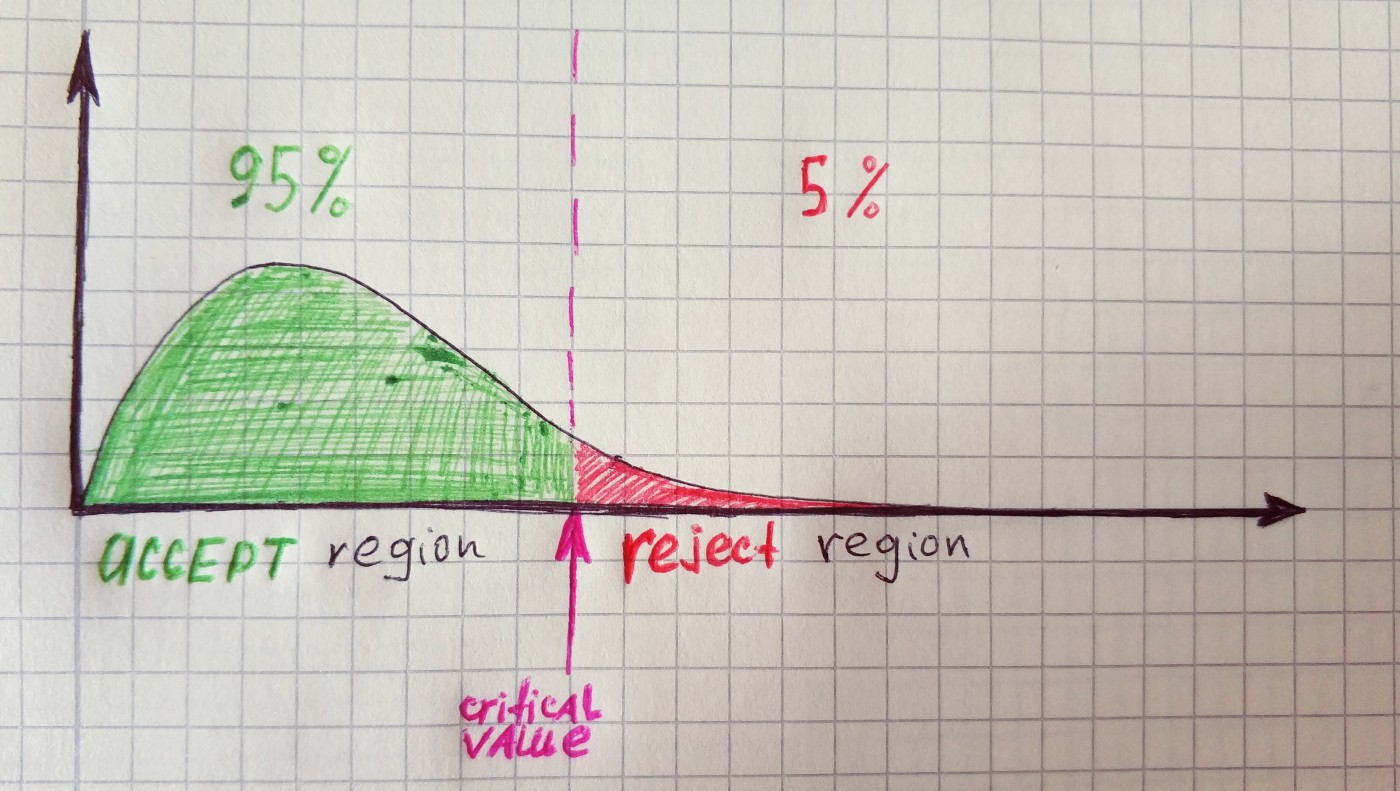 95%
5%
ACCEPT region
reject region
critical
value